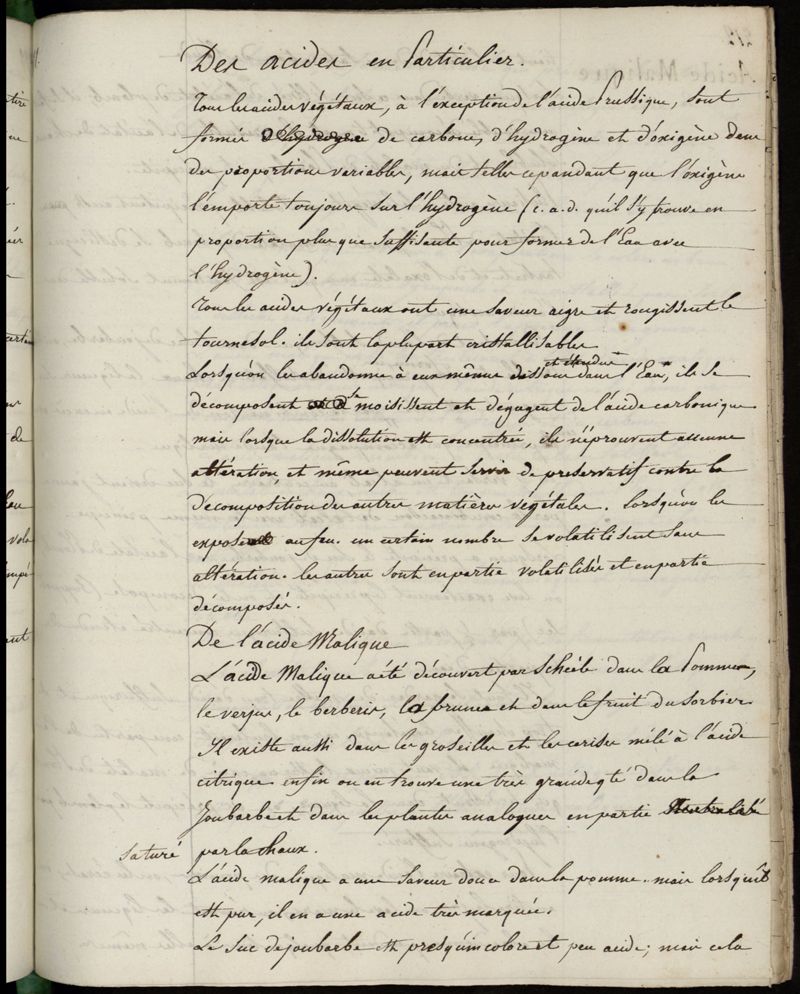 Des acides en Particulier.
Tous les acides végétaux, à l'exception de l'acide Prussique, sont
formés de carbone, d'hydrogène et d'oxigène dans
des proportions variables, mais telles cependant que l'oxigène
l'emporte toujours sur l'hydrogène (c. a. d. qu'il s'y trouve en
proportion plus que suffisante pour former de l'Eau avec
l'hydrogène).
Tous les acides végétaux ont une saveur aigre et rougissent le
tournesol. ils sont la plupart cristallisables
et étendus
Lorsqu'on les abandonne à eux mêmes dissous dans l'Eau, ils se
décomposent se moisissent et dégagent de l'acide carbonique
mais lorsque la dissolution est concentrée, ils n'éprouvent aucune
altération, et même peuvent servir de preservatif contre la
décomposition des autres matières végétales. Lorsqu'on les
expose au feu. un certain nombre se volatilisent sans
altération. les autres sont en partie volatilisés et en partie
décomposés.
De l'acide Malique
L'acide Malique a été découvert par Schéele dans la Pomme,
le verjus, le berberis, la prune et dans le fruit du Sorbier
Il existe aussi dans les groseilles et les cerises mêlé à l'acide
citrique enfin on en trouve une très grande qté dans la
Joubarbe et dans les plantes analogues en partie Neutralisé
saturé par la chaux.
L'acide malique a une saveur douce dans la pomme. mais lorsqu'il
est pur, il en a une acide très marquée.
Le Suc de joubarbe est presqu'incolore et peu acide; mais cela